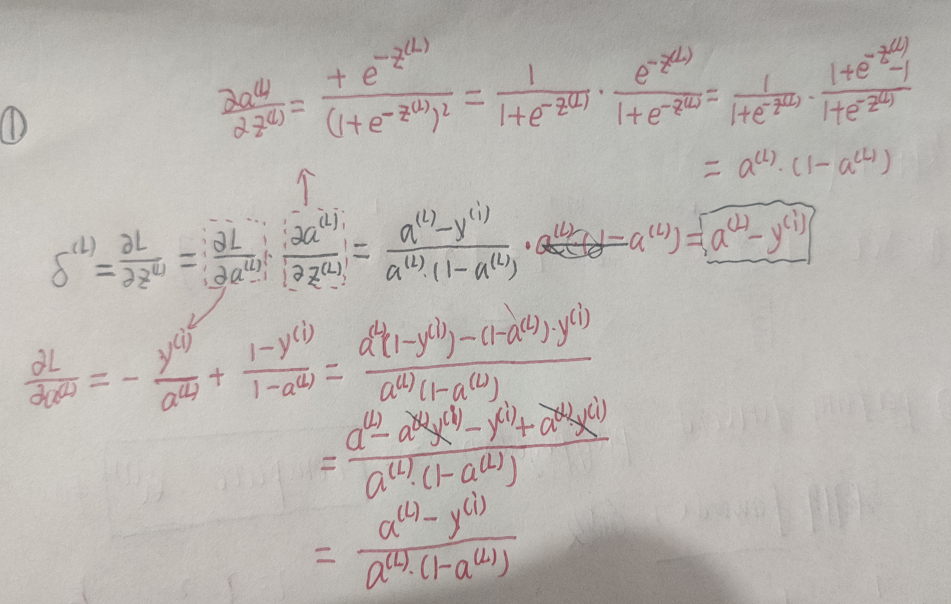 ① ∂a^(L)/∂z^(L) = + e^-z^(L)/(1+e^-z^(L))² = 1/(1+e^-z^(L)) · e^-z^(L)/(1+e^-z^(L)) = 1/(1+e^-z^(L)) · (1+e^-z^(L)-1)/(1+e^-z^(L))
= a^(L) · (1-a^(L))
δ^(L) = ∂L/∂z^(L) = ∂L/∂a^(L) · ∂a^(L)/∂z^(L) = (a^(L)-y^(i))/(a^(L)·(1-a^(L))) · a^(L)·(1-a^(L)) = a^(L)-y^(i)
∂L/∂a^(L) = - y^(i)/a^(L) + (1-y^(i))/(1-a^(L)) = (a^(L)(1-y^(i))-(1-a^(L))·y^(i))/(a^(L)(1-a^(L)))
= (a^(L)-a^(L)y^(i)-y^(i)+a^(L)·y^(i))/(a^(L)·(1-a^(L)))
= (a^(L)-y^(i))/(a^(L)·(1-a^(L)))